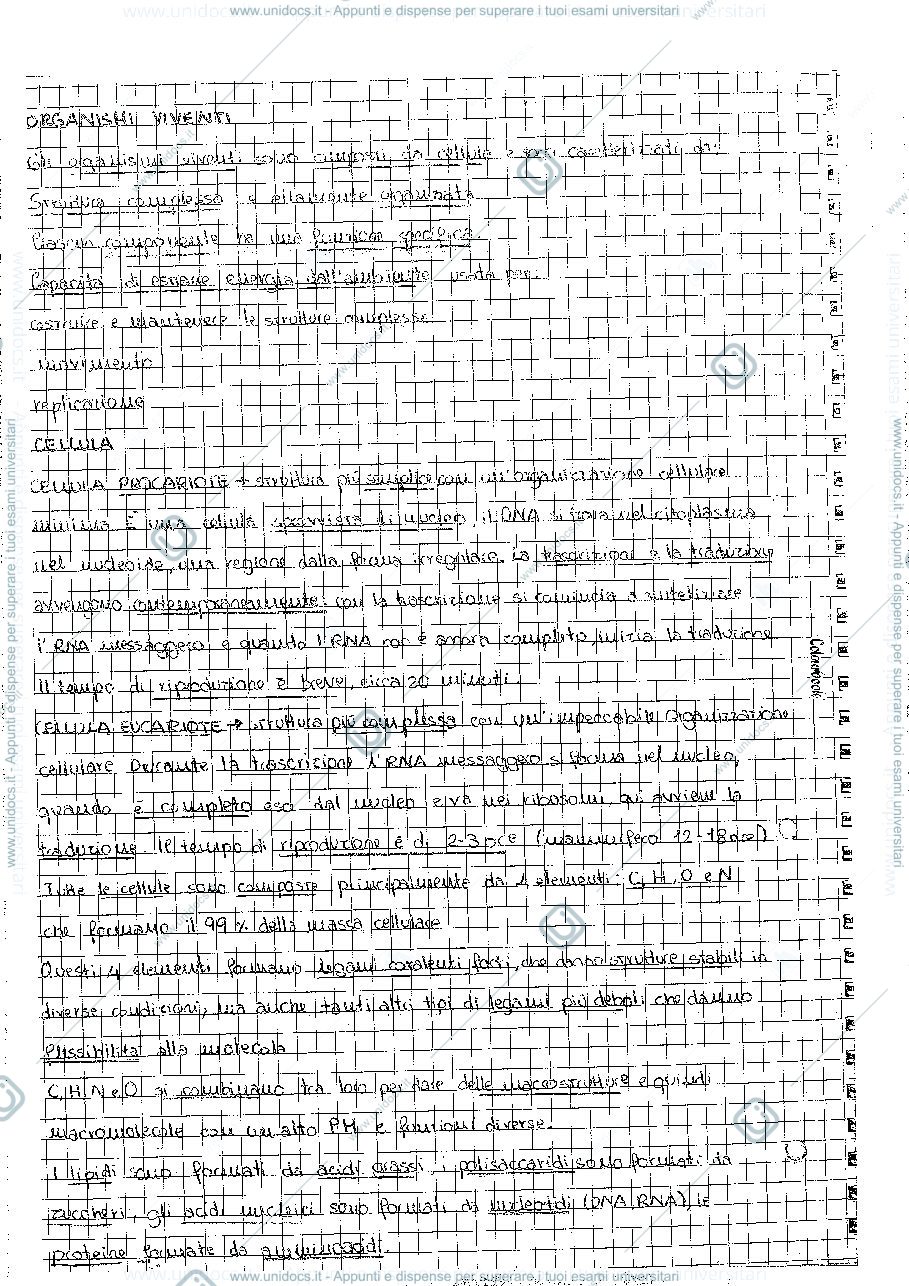 www.unidocs.it - Appunti e dispense per superare i tuoi esami universitari
ORGANISMI VIVENTI
Gli organismi viventi sono composti da cellule e sono caratterizzati da:
Struttura complessa e altamente organizzata
Ciascun componente ha una funzione specifica
Capacità di estrarre energia dall'ambiente usata per:
costruire e mantenere le strutture complesse
movimento
replicazione
CELLULA
CELLULA PROCARIOTE → struttura più semplice con un'organizzazione cellulare
minima È una cellula sprovvista di nucleo il DNA si trova nel citoplasma
nel nucleoide, una regione dalla forma irregolare. La trascrizione e la traduzione
avvengono contemporaneamente: con la trascrizione si comincia a sintetizzare
l'RNA messaggero e quando l'RNA non è ancora completo, inizia la traduzione
Il tempo di riproduzione è breve, circa 20 minuti
CELLULA EUCARIOTE → struttura più complessa con un'impeccabile organizzazione
cellulare Durante la trascrizione l'RNA messaggero si forma nel nucleo,
quando è completo esce dal nucleo e va nei ribosomi, qui avviene la
traduzione. Il tempo di riproduzione è di 2-3 ore (mammifero 12-18 ore)
Tutte le cellule sono composte principalmente da 4 elementi: C, H, O e N
che formano il 99% della massa cellulare
Questi 4 elementi formano legami covalenti forti, che danno strutture stabili in
diverse condizioni, ma anche tanti altri tipi di legami più deboli che danno
flessibilità alla molecola
C, H, N e O si combinano tra loro per dare delle macrostrutture e quindi
macromolecole con un alto PM e funzioni diverse.
I lipidi sono formati da acidi grassi, i polisaccaridi sono formati da
zuccheri, gli acidi nucleici sono formati da nucleotidi (DNA, RNA), le
proteine formate da amminoacidi
www.unidocs.it - Appunti e dispense per superare i tuoi esami universitari